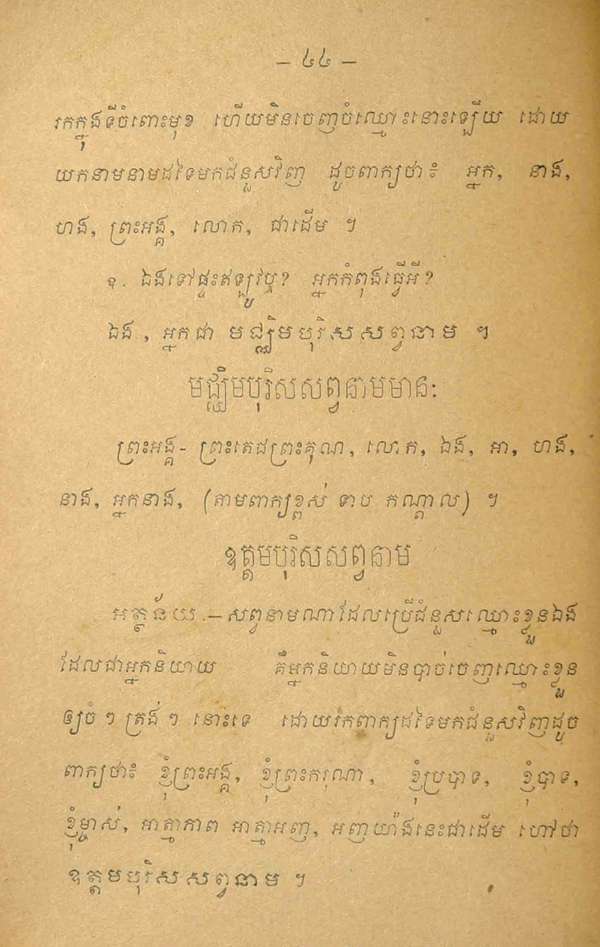 — ៤៤ —
រកក្នុងទីចំពោះមុខ ហើយមិនចេញចំឈ្មោះនោះឡើយ ដោយ
យកនាមនាមដទៃមកជំនួសវិញ ដូចពាក្យថា៖ អ្នក, នាង,
ហង, ព្រះអង្គ, លោក, ជាដើម ។
ឧ. ឯងទៅផ្ទះឥឡូវឬ? អ្នកកំពុងធ្វើអី?
ឯង, អ្នកជា មជ្ឈិមបុរិសសព្វនាម ។
មជ្ឈិមបុរិសសព្វនាមមាន:
ព្រះអង្គ - ព្រះតេជព្រះគុណ, លោក, ឯង, អា, ហង,
នាង, អ្នកនាង, (តាមពាក្យខ្ពស់ ទាប កណ្ដាល) ។
ឧត្តមបុរិសសព្វនាម
អត្ថន័យ.—សព្វនាមណាដែលប្រើជំនួសឈ្មោះខ្លួនឯង
ដែលជាអ្នកនិយាយ គឺអ្នកនិយាយមិនបាច់ចេញឈ្មោះខ្លួន
ឲ្យចំៗ ត្រង់ៗ នោះទេ ដោយរកពាក្យដទៃមកជំនួសវិញដូច
ពាក្យថា៖ ខ្ញុំព្រះអង្គ, ខ្ញុំព្រះករុណា, ខ្ញុំប្របាទ, ខ្ញុំបាទ,
ខ្ញុំម្ចាស់, អាត្មាភាព អាត្មាអញ, អញយ៉ាងនេះជាដើម ហៅថា
ឧត្តមបុរិសសព្វនាម ។